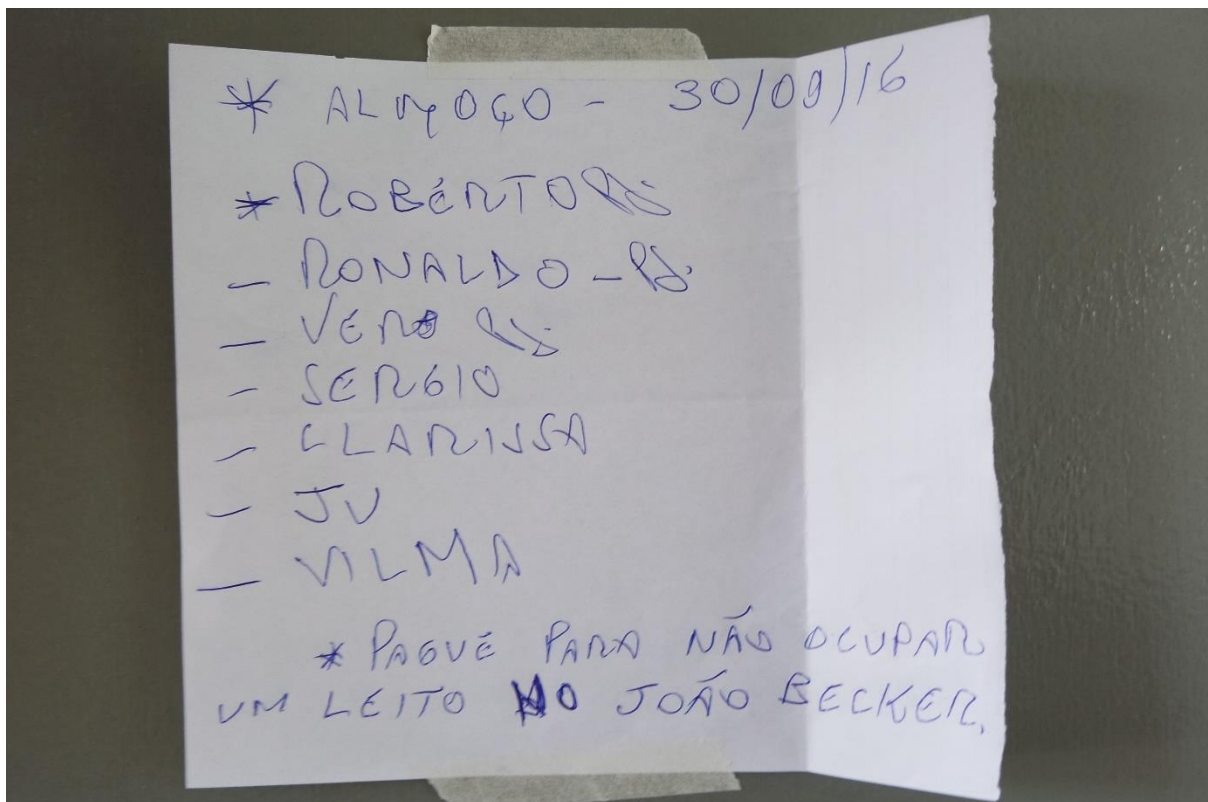 * ALMOÇO - 30/09/16
* ROBERTO
- RONALDO -
- VERO
- SERGIO
- CLARISSA
- JU
- VILMA
* PAGUE PARA NÃO OCUPAR
UM LEITO NO JOÃO BECKER.